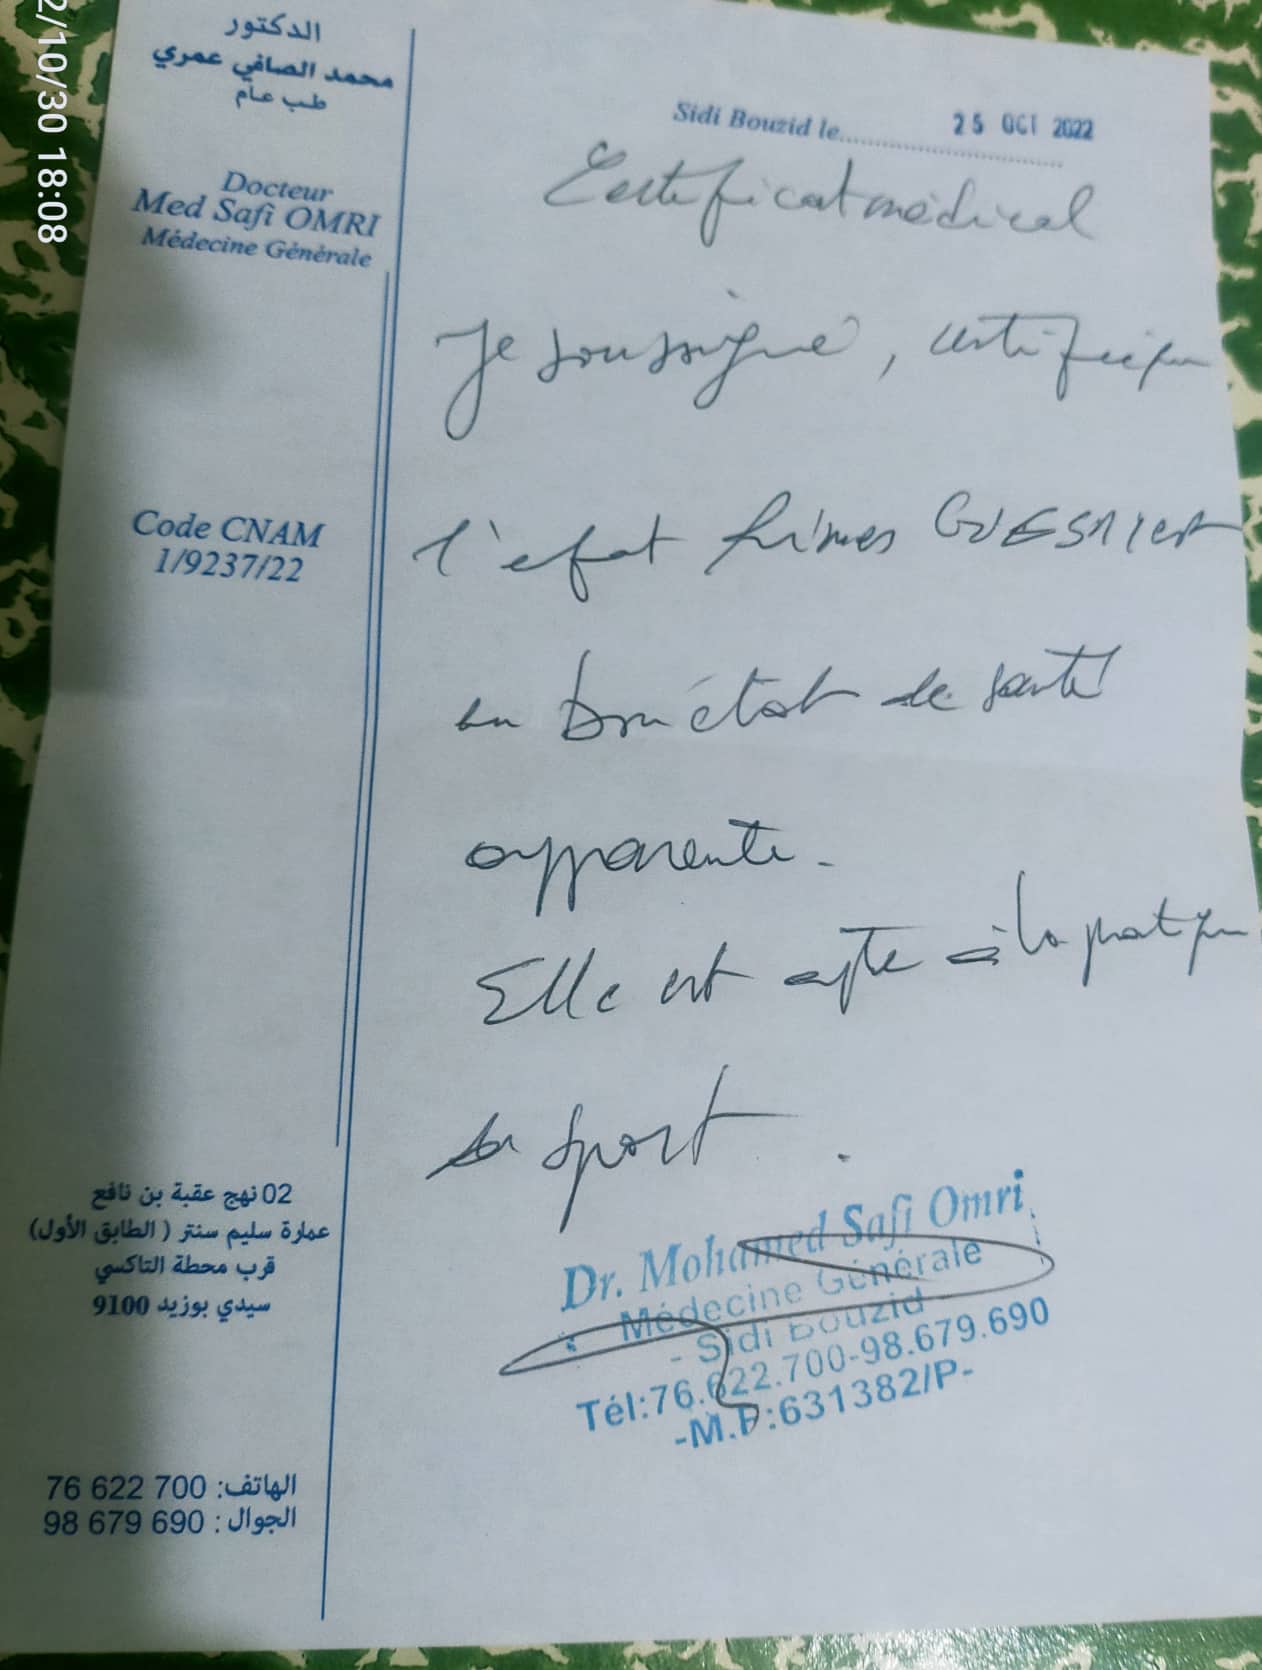 2/10/30 18:08
الدكتور
محمد الصافي عمري
طب عام
Docteur
Med Safi OMRI
Médecine Générale
Code CNAM
1/9237/22
02 نهج عقبة بن نافع
عمارة سليم سنتر ( الطابق الأول)
قرب محطة التاكسي
سيدي بوزيد 9100
الهاتف: 76 622 700
الجوال : 98 679 690
Sidi Bouzid le 25 OCT 2022
Certificat médical
Je soussigné, certifie que
l'efat est
en bon état de santé
apparente.
Elle est apte à la pratique
du sport.
Dr. Mohamed Safi Omri
Médecine Générale
- Sidi Bouzid -
Tél:76.622.700-98.679.690
-M.P:631382/P-